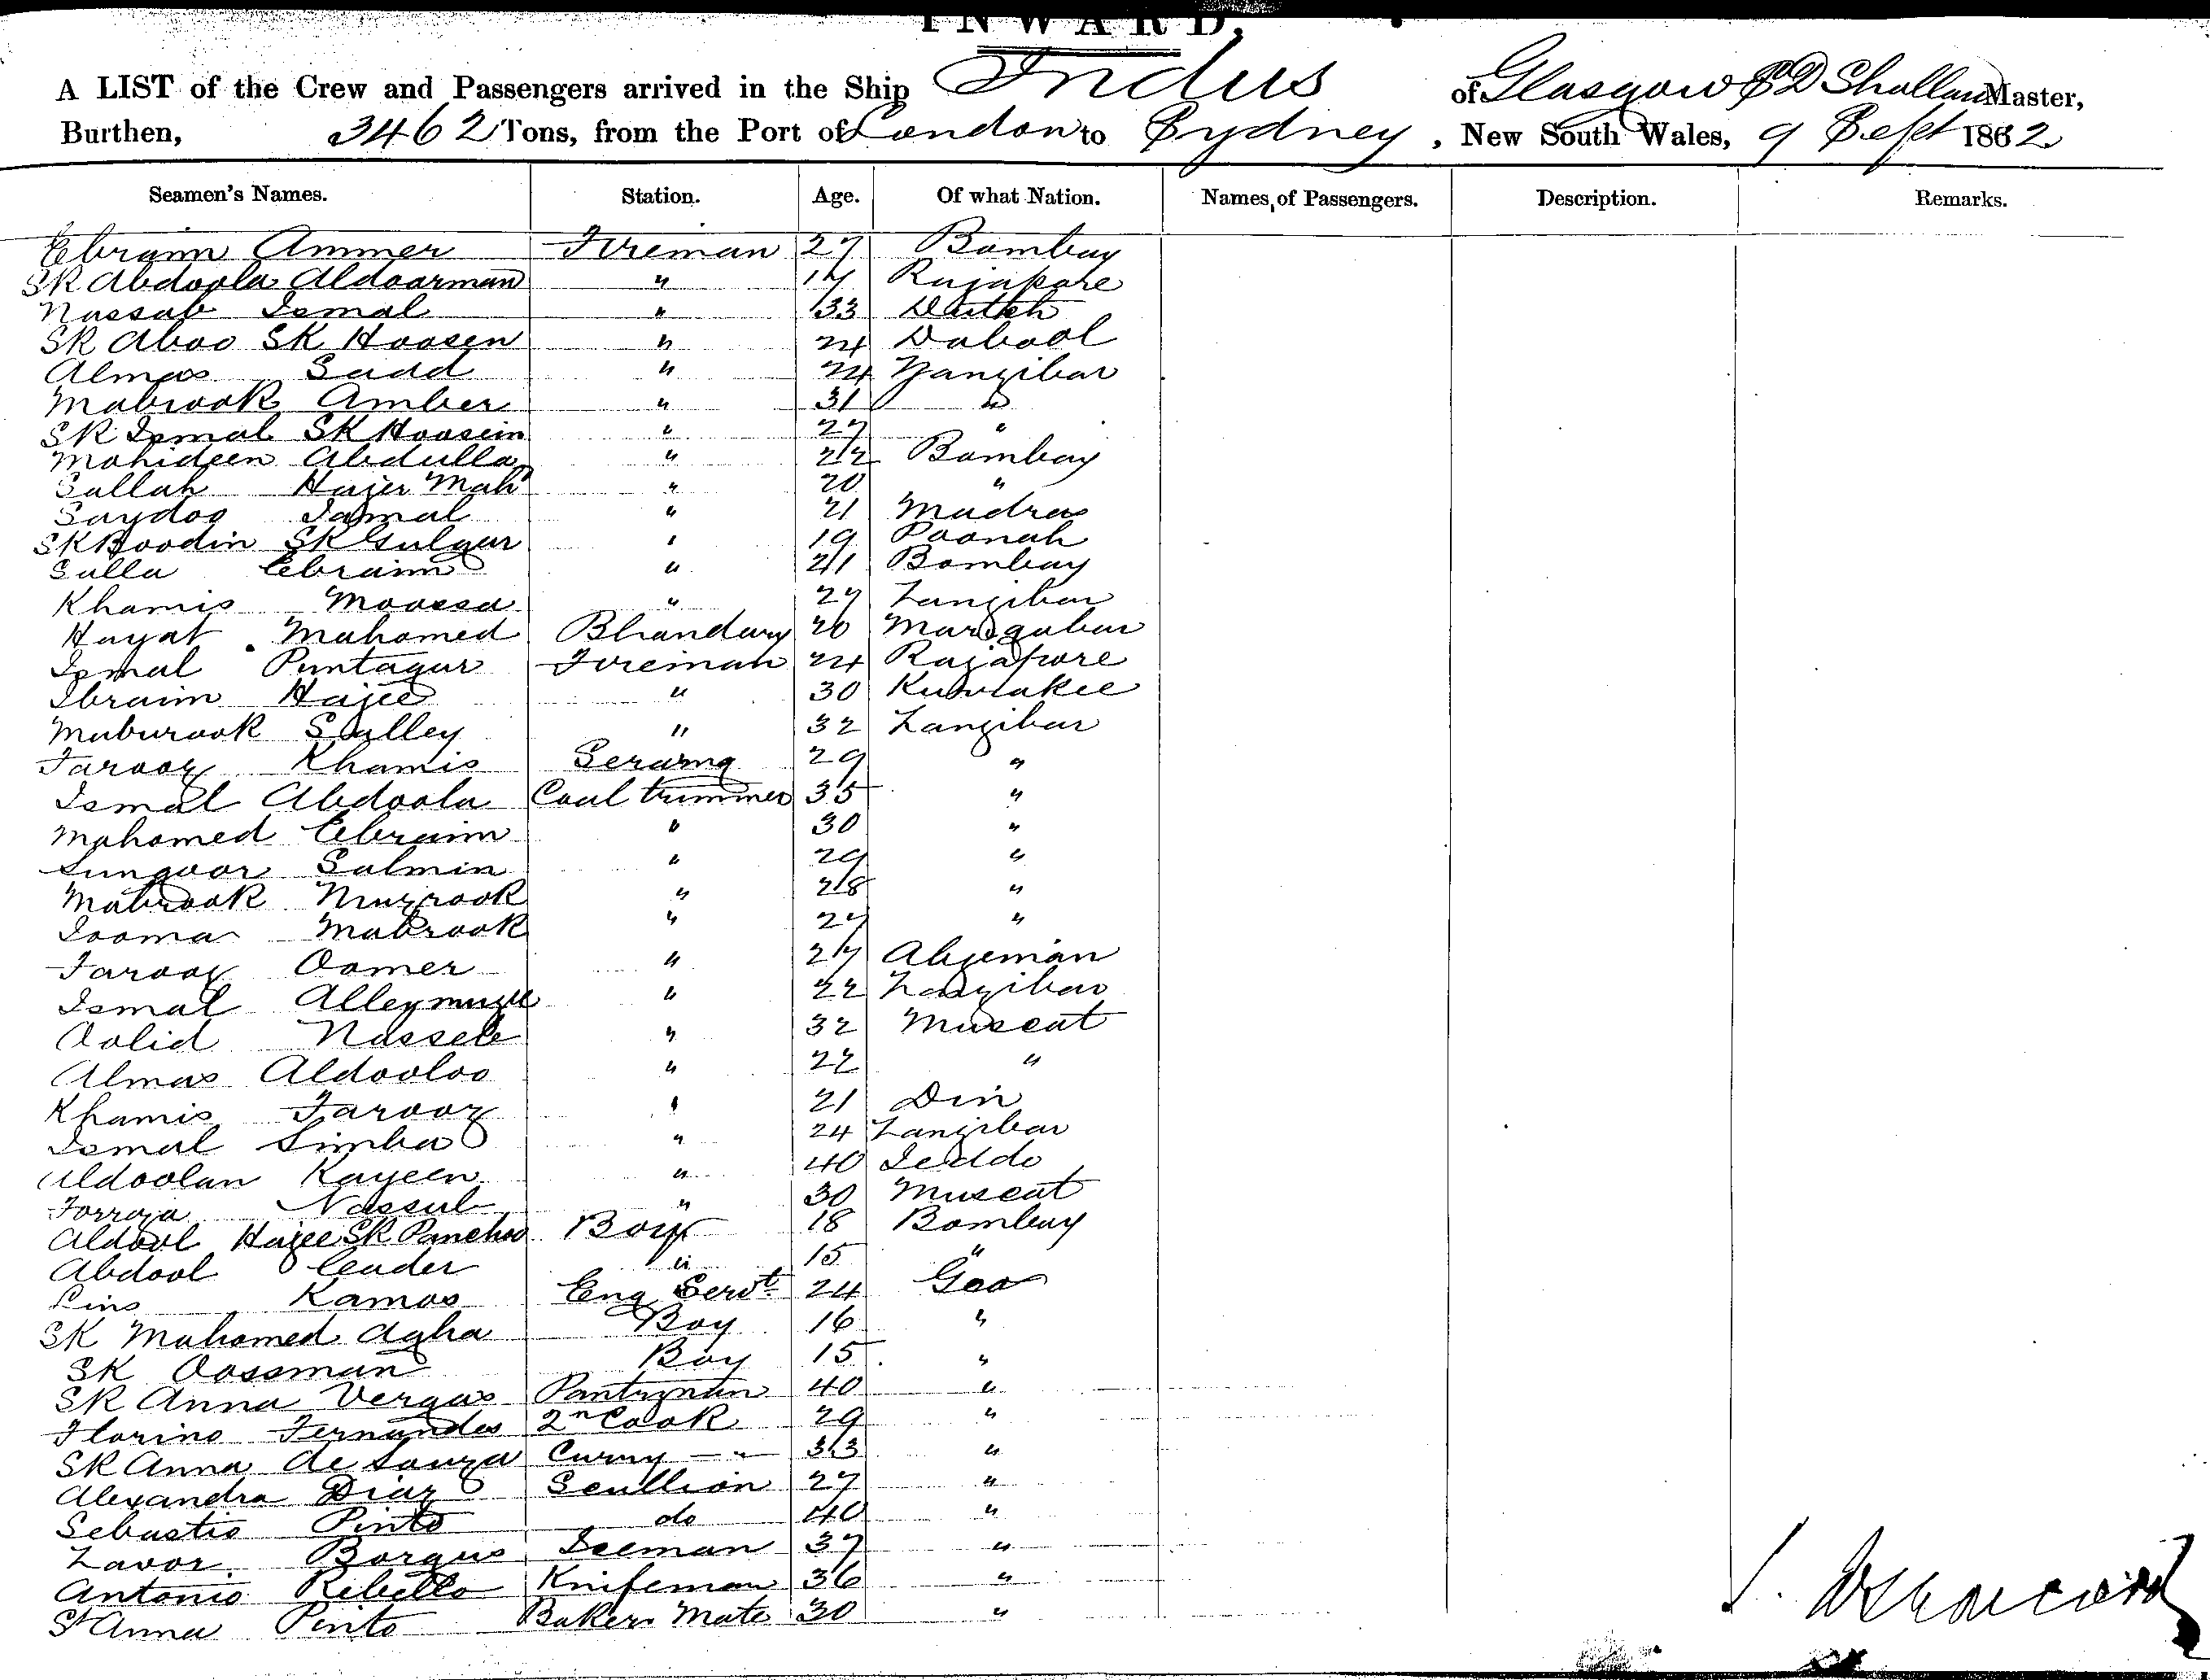 INWARD.
A LIST of the Crew and Passengers arrived in the Ship Indus of Glasgow Master,
Burthen, 3462 Tons, from the Port of London to Sydney, New South Wales, 9 Sept 1882
Seamen's Names. Station. Age. Of what Nation. Names of Passengers. Description. Remarks.
Ebraim Ammer Fireman 27 Bombay
SK Abdoola Aldoarman " Rajapore
Nassub Ismal " 33
SK Aboo SK Hoosen " 24 Dabool
Almas Sadd " 24 Zanzibar
Mabrook Amber " 31 "
SK Ismal SK Hoosein " 27 "
Mohideen Abdulla " 22 Bombay
Sallah Hajee Mah " 20 "
Saydoo Jamal " 21 Madras
SK Boodin SK Gulgur " 19 Poonah
Sulla Ebraim " 21 Bombay
Khamis Moossa " 27 Zanzibar
Hayat Mahomed Bhandary 20
Ismal Puntagur Fireman 24 Rajapore
Ibraim Hajee " 30
Muburook Sulley " 32 Zanzibar
Farooz Khamis Serang 29 "
Ismal Abdoola Coal trimmer 35 "
Mahomed Ebraim " 30 "
Sungoor Salmin " 29 "
Mabrook Nuzrook " 28 "
Jooma Mabrook " 27 "
Farooz Oomer " 27
Ismal " 22 Zanzibar
Oolid Nasseb " 32 Muscat
Almas Aldooloo " 22 "
Khamis Farooz " 21 Din
Ismal Simba " 24 Zanzibar
Aldoolan Kayeen " 40 Jeddo
Forroja Nassub " 30 Muscat
Aldool Hajee SK Panchoo Boy 18 Bombay
Abdool Cader " 15 "
Lino Kamos Eng Servt 24 Goa
SK Mahomed Agha Boy 16 "
SK Oossman Boy 15 "
SK Anna Vergas Pantryman 40 "
Florino Fernandes 2n Cook 29 "
SK Anna de Souza Curry — " 33 "
Alexandra Diaz Scullion 27 "
Sebastio Pinto do 40 "
Zavor Borgus Iceman 37 "
Antonio Ribello Knifeman 36 "
St Anna Pinto Bakers Mate 30 "